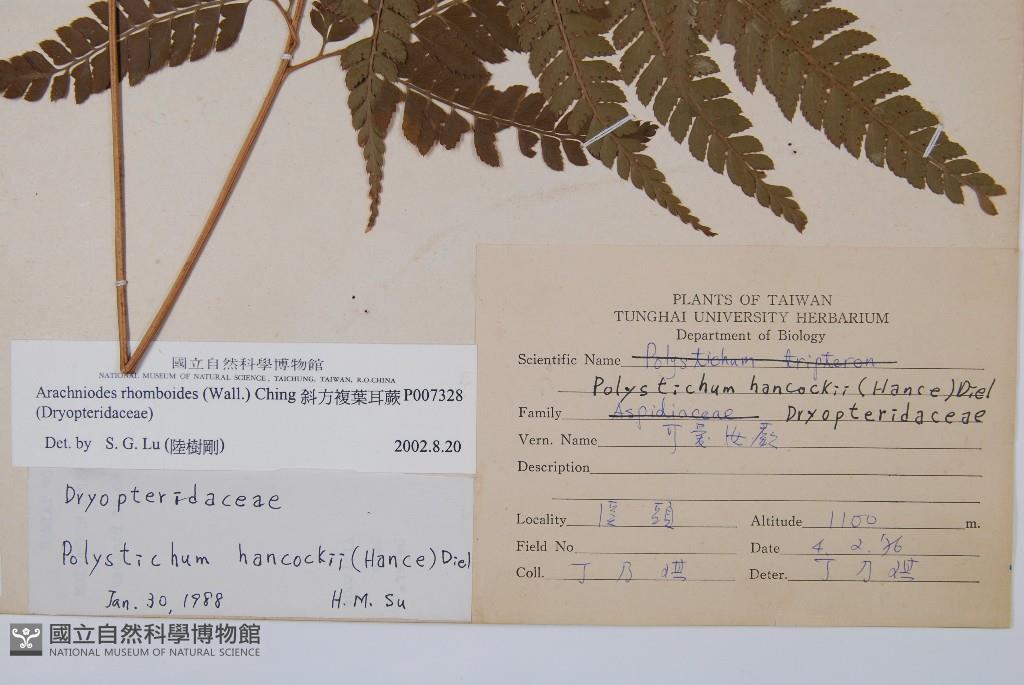 國立自然科學博物館
NATIONAL MUSEUM OF NATURAL SCIENCE, TAICHUNG, TAIWAN, R.O.CHINA
Arachniodes rhomboides (Wall.) Ching 斜方複葉耳蕨 P007328
(Dryopteridaceae)
Det. by S. G. Lu (陸樹剛) 2002.8.20
Dryopteridaceae
Polystichum hancockii (Hance) Diel
Jan. 30, 1988 H. M. Su
PLANTS OF TAIWAN
TUNGHAI UNIVERSITY HERBARIUM
Department of Biology
Scientific Name Polystichum tripteron
Polystichum hancockii (Hance) Diel
Family Aspidiaceae Dryopteridaceae
Vern. Name
Description
Locality 頭 Altitude 1100 m.
Field No. Date 4. 2. '76
Coll. 丁乃 Deter. 丁乃
國立自然科學博物館
NATIONAL MUSEUM OF NATURAL SCIENCE